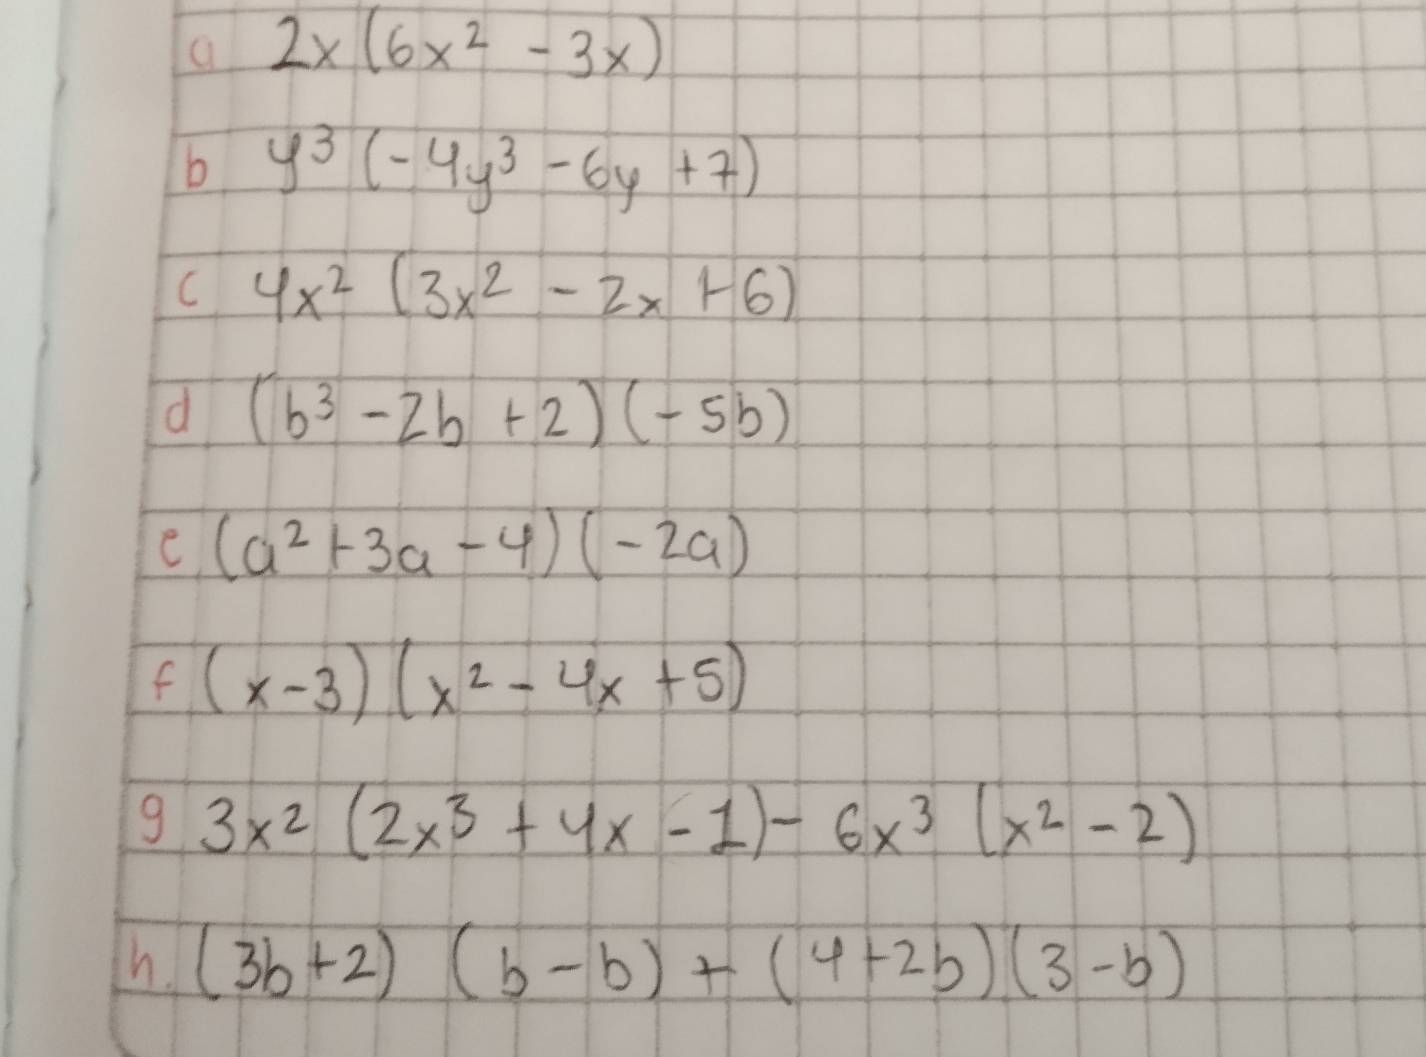 a 2x(6x² - 3x)
b y³(-4y³ - 6y + 7)
c 4x² (3x² - 2x + 6)
d (b³ - 2b + 2)(-5b)
e (a² + 3a - 4)(-2a)
f (x - 3)(x² - 4x + 5)
g 3x² (2x³ + 4x - 1) - 6x³ (x² - 2)
h. (3b + 2) (b - b) + (4 + 2b)(3 - b)